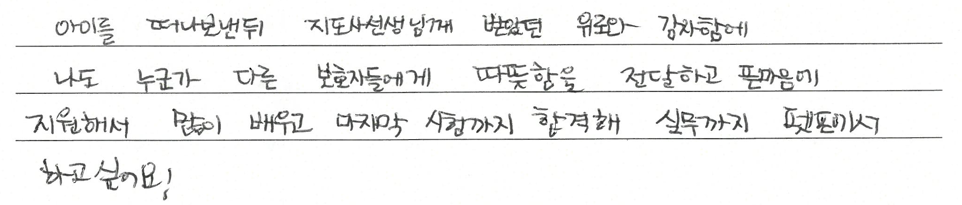 아이를 떠나보낸뒤 지도사선생님께 받았던 위로와 감사함에
나도 누군가 다른 보호자들에게 따뜻함을 전달하고 픈마음에
지원해서 많이 배우고 마지막 시험까지 합격해 실무까지 펫포에서
하고싶어요!